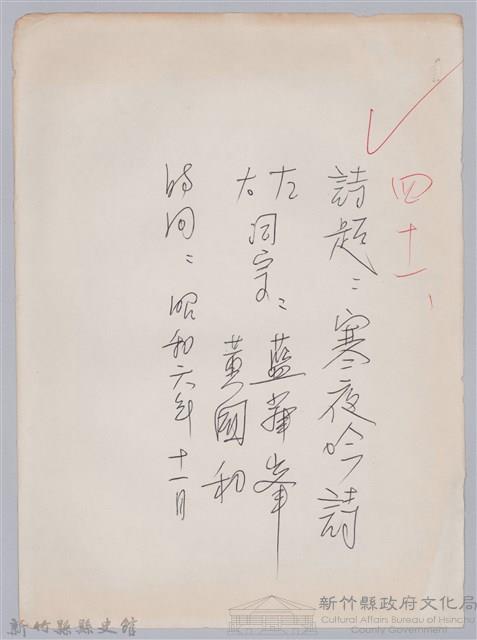 四十一、
詩題：寒夜吟詩
左
右
詞宗：藍華峯
黃國和
時間：昭和六年十一月
新竹縣縣史館
新竹縣政府文化局
Cultural Affairs Bureau of Hsinchu
County Government